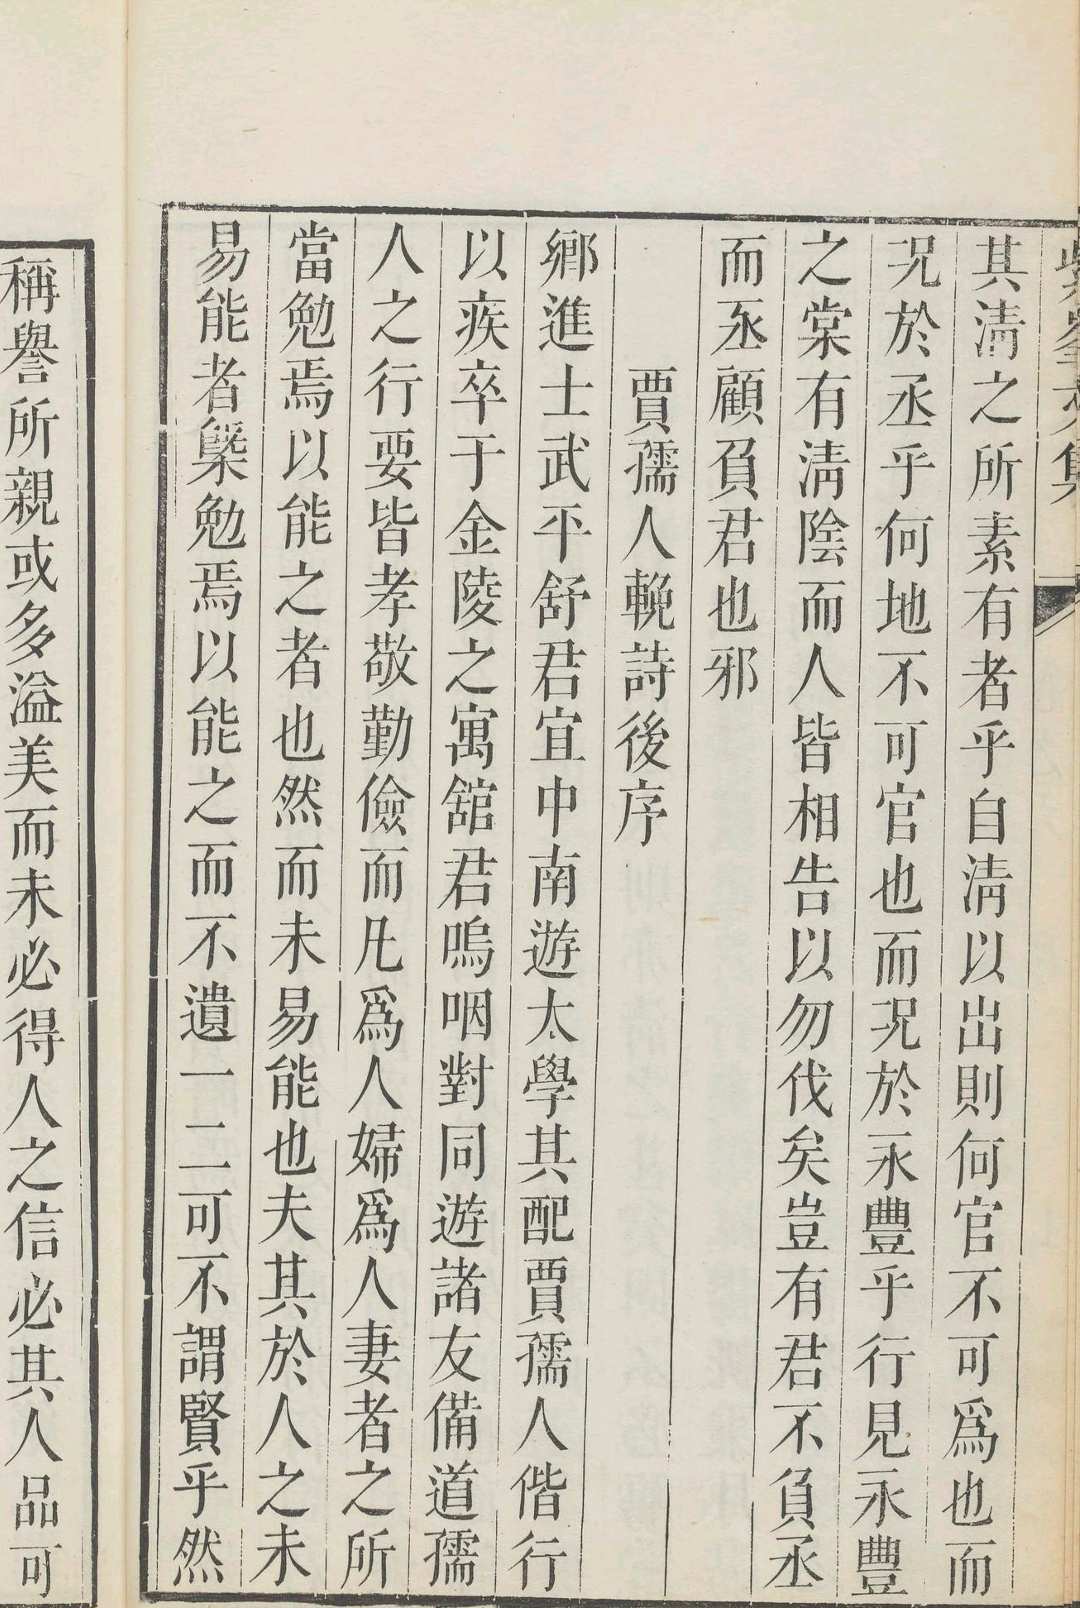 其清之所素有者乎自清以出則何官不可爲也而
況於丞乎何地不可官也而況於永豐乎行見永豐
之棠有清陰而人皆相告以勿伐矣豈有君不負丞
而丞顧負君也邪
賈孺人輓詩後序
鄉進士武平舒君宜中南遊太學其配賈孺人偕行
以疾卒于金陵之寓舘君嗚咽對同遊諸友備道孺
人之行要皆孝敬勤儉而凡爲人婦爲人妻者之所
當勉焉以能之者也然而未易能也夫其於人之未
易能者槩勉焉以能之而不遺一二可不謂賢乎然
稱譽所親或多溢美而未必得人之信必其人品可